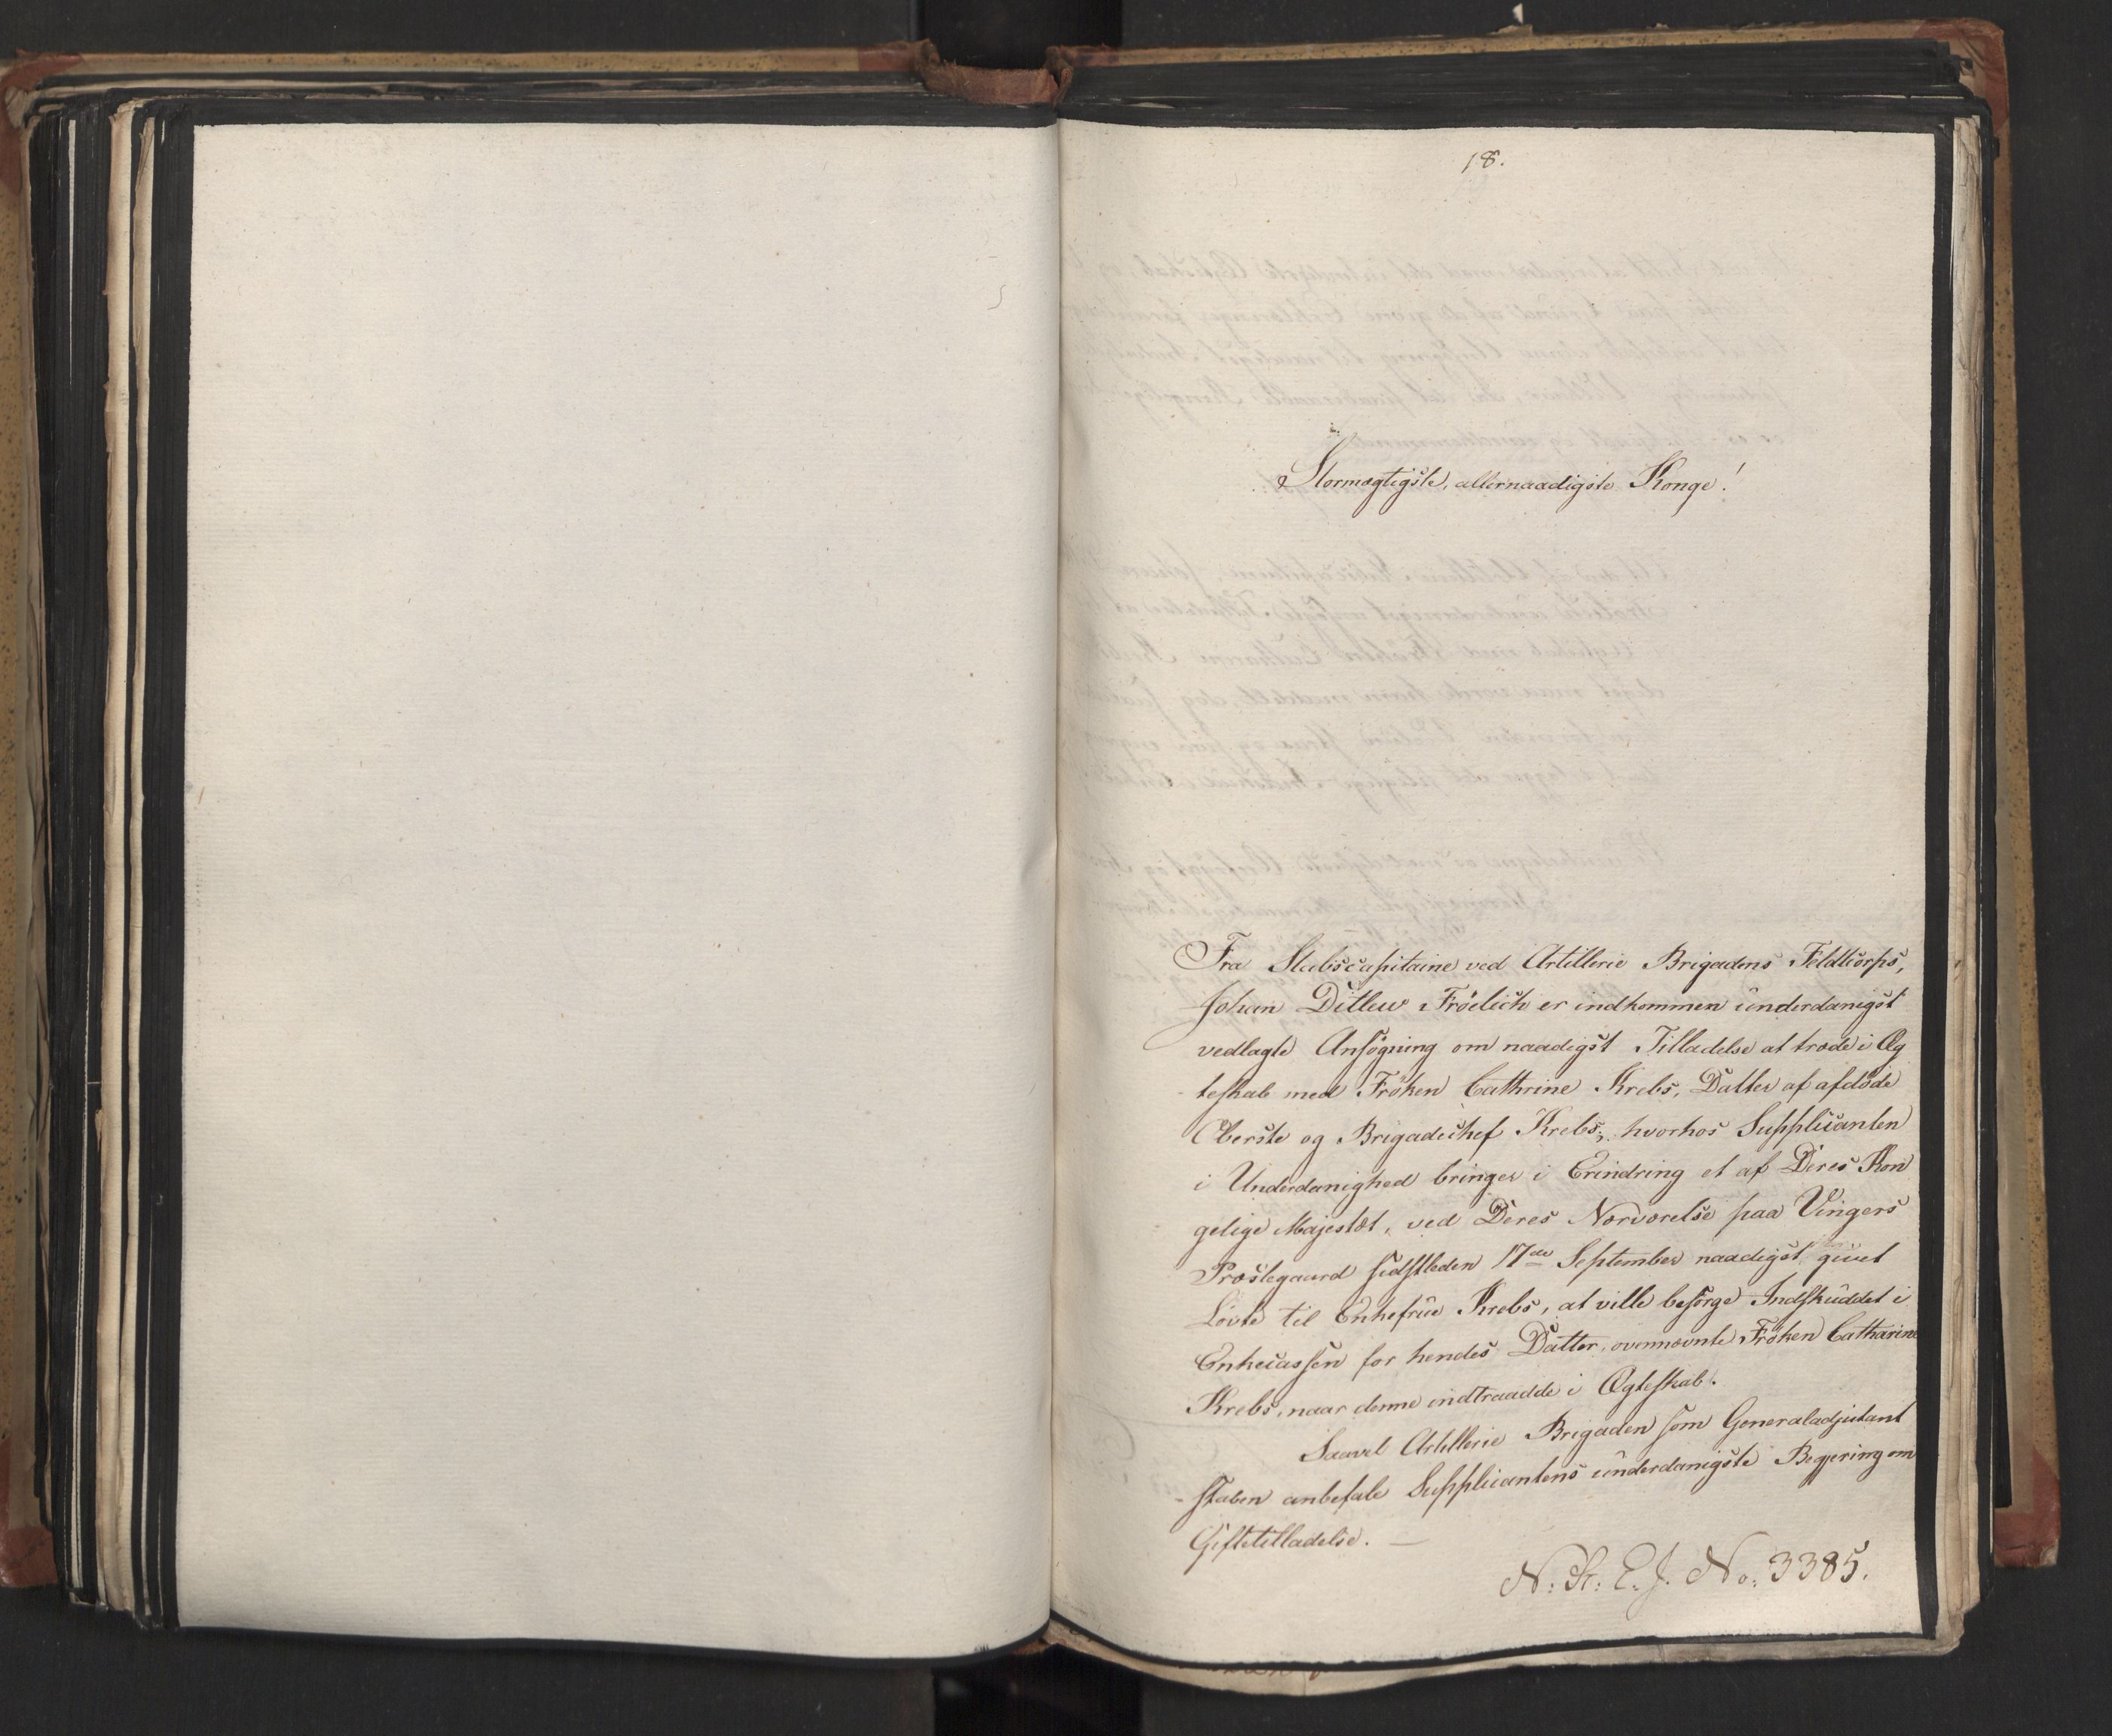 18.
Stormægtigste, allernaadigste Konge!
Fra Stabscapitaine ved Artillerie Brigadens Feldtcorps,
Johan Ditlew Fröelich er indkommen underdanigst
vedlagte Ansögning om naadigst Tilladelse at træde i Æg
teskab med Fröken Cathrine Krebs, Datter af afdöde
Oberste og Brigadechef Krebs; hvorhos Supplicanten
i Underdanighed bringer i Erindring et af Deres Kon
gelige Majestæt, ved Deres Nærværelse paa Vingers
Præstegaard sidstleden 17de September naadigst givet
Løvte til Enkefrue Krebs, at ville besörge Indskuddet i
Enkecassen for hendes Datter, ovennævnte Fröken Catharine
Krebs, naar denne indtraadde i Ægteskab.
Saavel Artillerie Brigaden som Generaladjutant
staben anbefale Supplicantens underdanigste Begjering om
Giftetilladelse. —
N: R: E. J. No: 3385.